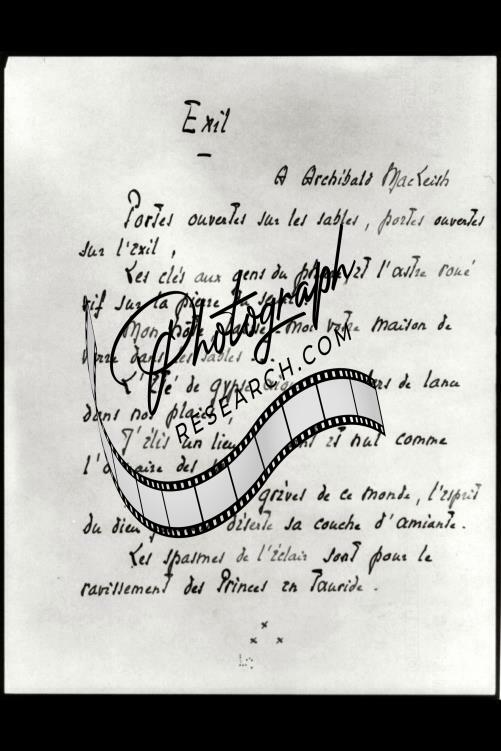 Exil
A Archibald MacLeish
Portes ouvertes sur les sables, portes ouvertes
sur l'exil,
Les clés aux gens du et l'astre roué
vif sur la pierre
Mon hôte, moi votre maison de
verre dans les sables
L'Été de gypse de lance
dans nos plaies,
J'élis un lieu et nul comme
l' des
grèves de ce monde, l'esprit
du dieu déserte sa couche d'amiante.
Les spasmes de l'éclair sont pour le
ravissement des Princes en Tauride.
Photograph
RESEARCH.COM